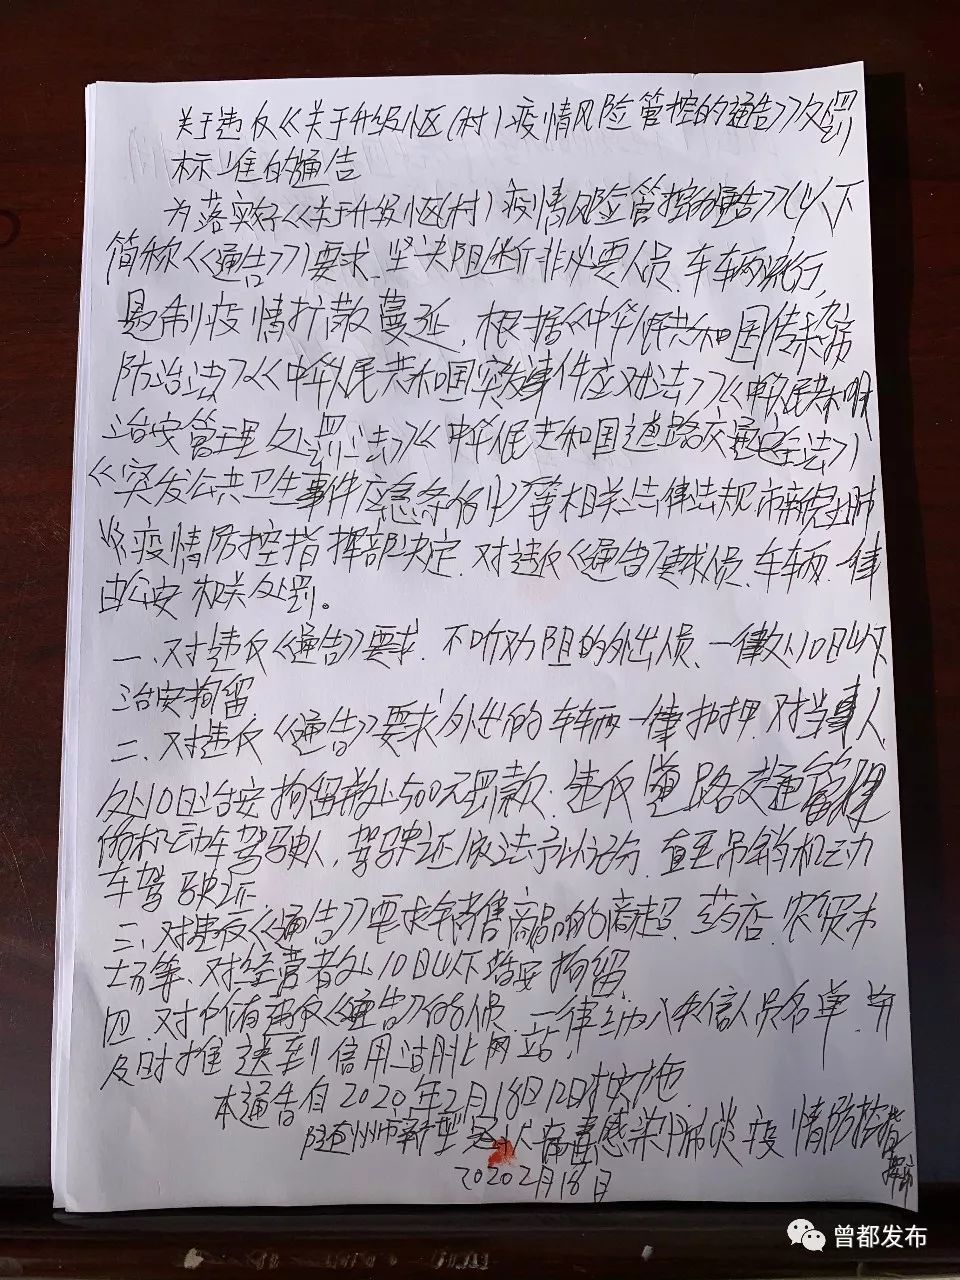 关于违反《关于升级小区(村)疫情风险管控的通告》处罚
标准的通告
为落实好《关于升级小区(村)疫情风险管控的通告》(以下
简称《通告》)要求,坚决阻断非必要人员、车辆流行,
遏制疫情扩散蔓延,根据《中华人民共和国传染病
防治法》《中华人民共和国突发事件应对法》《中华人民共和国
治安管理处罚法》《中华人民共和国道路交通安全法》
《突发公共卫生事件应急条例》等相关法律法规,市新冠肺
炎疫情防控指挥部决定,对违反《通告》要求人员、车辆,一律
由公安机关处罚。
一、对违反《通告》要求,不听劝阻的外出人员,一律处10日以下
治安拘留
二、对违反《通告》要求外出的车辆一律扣押,对当事人
处10日治安拘留并处500元罚款,违反道路交通管理
的机动车驾驶人,驾驶证依法予以记分,直至吊销机动
车驾驶证
三、对违反《通告》要求销售商品的商超、药店、农贸市
场等,对经营者处10日以下治安拘留
四、对所有违反《通告》的人员,一律纳入失信人员名单,并
及时推送到信用湖北网站,
本通告自2020年2月18日12时实施
随州市新型冠状病毒感染肺炎疫情防控指
挥部
2020 2月18日
曾都发布